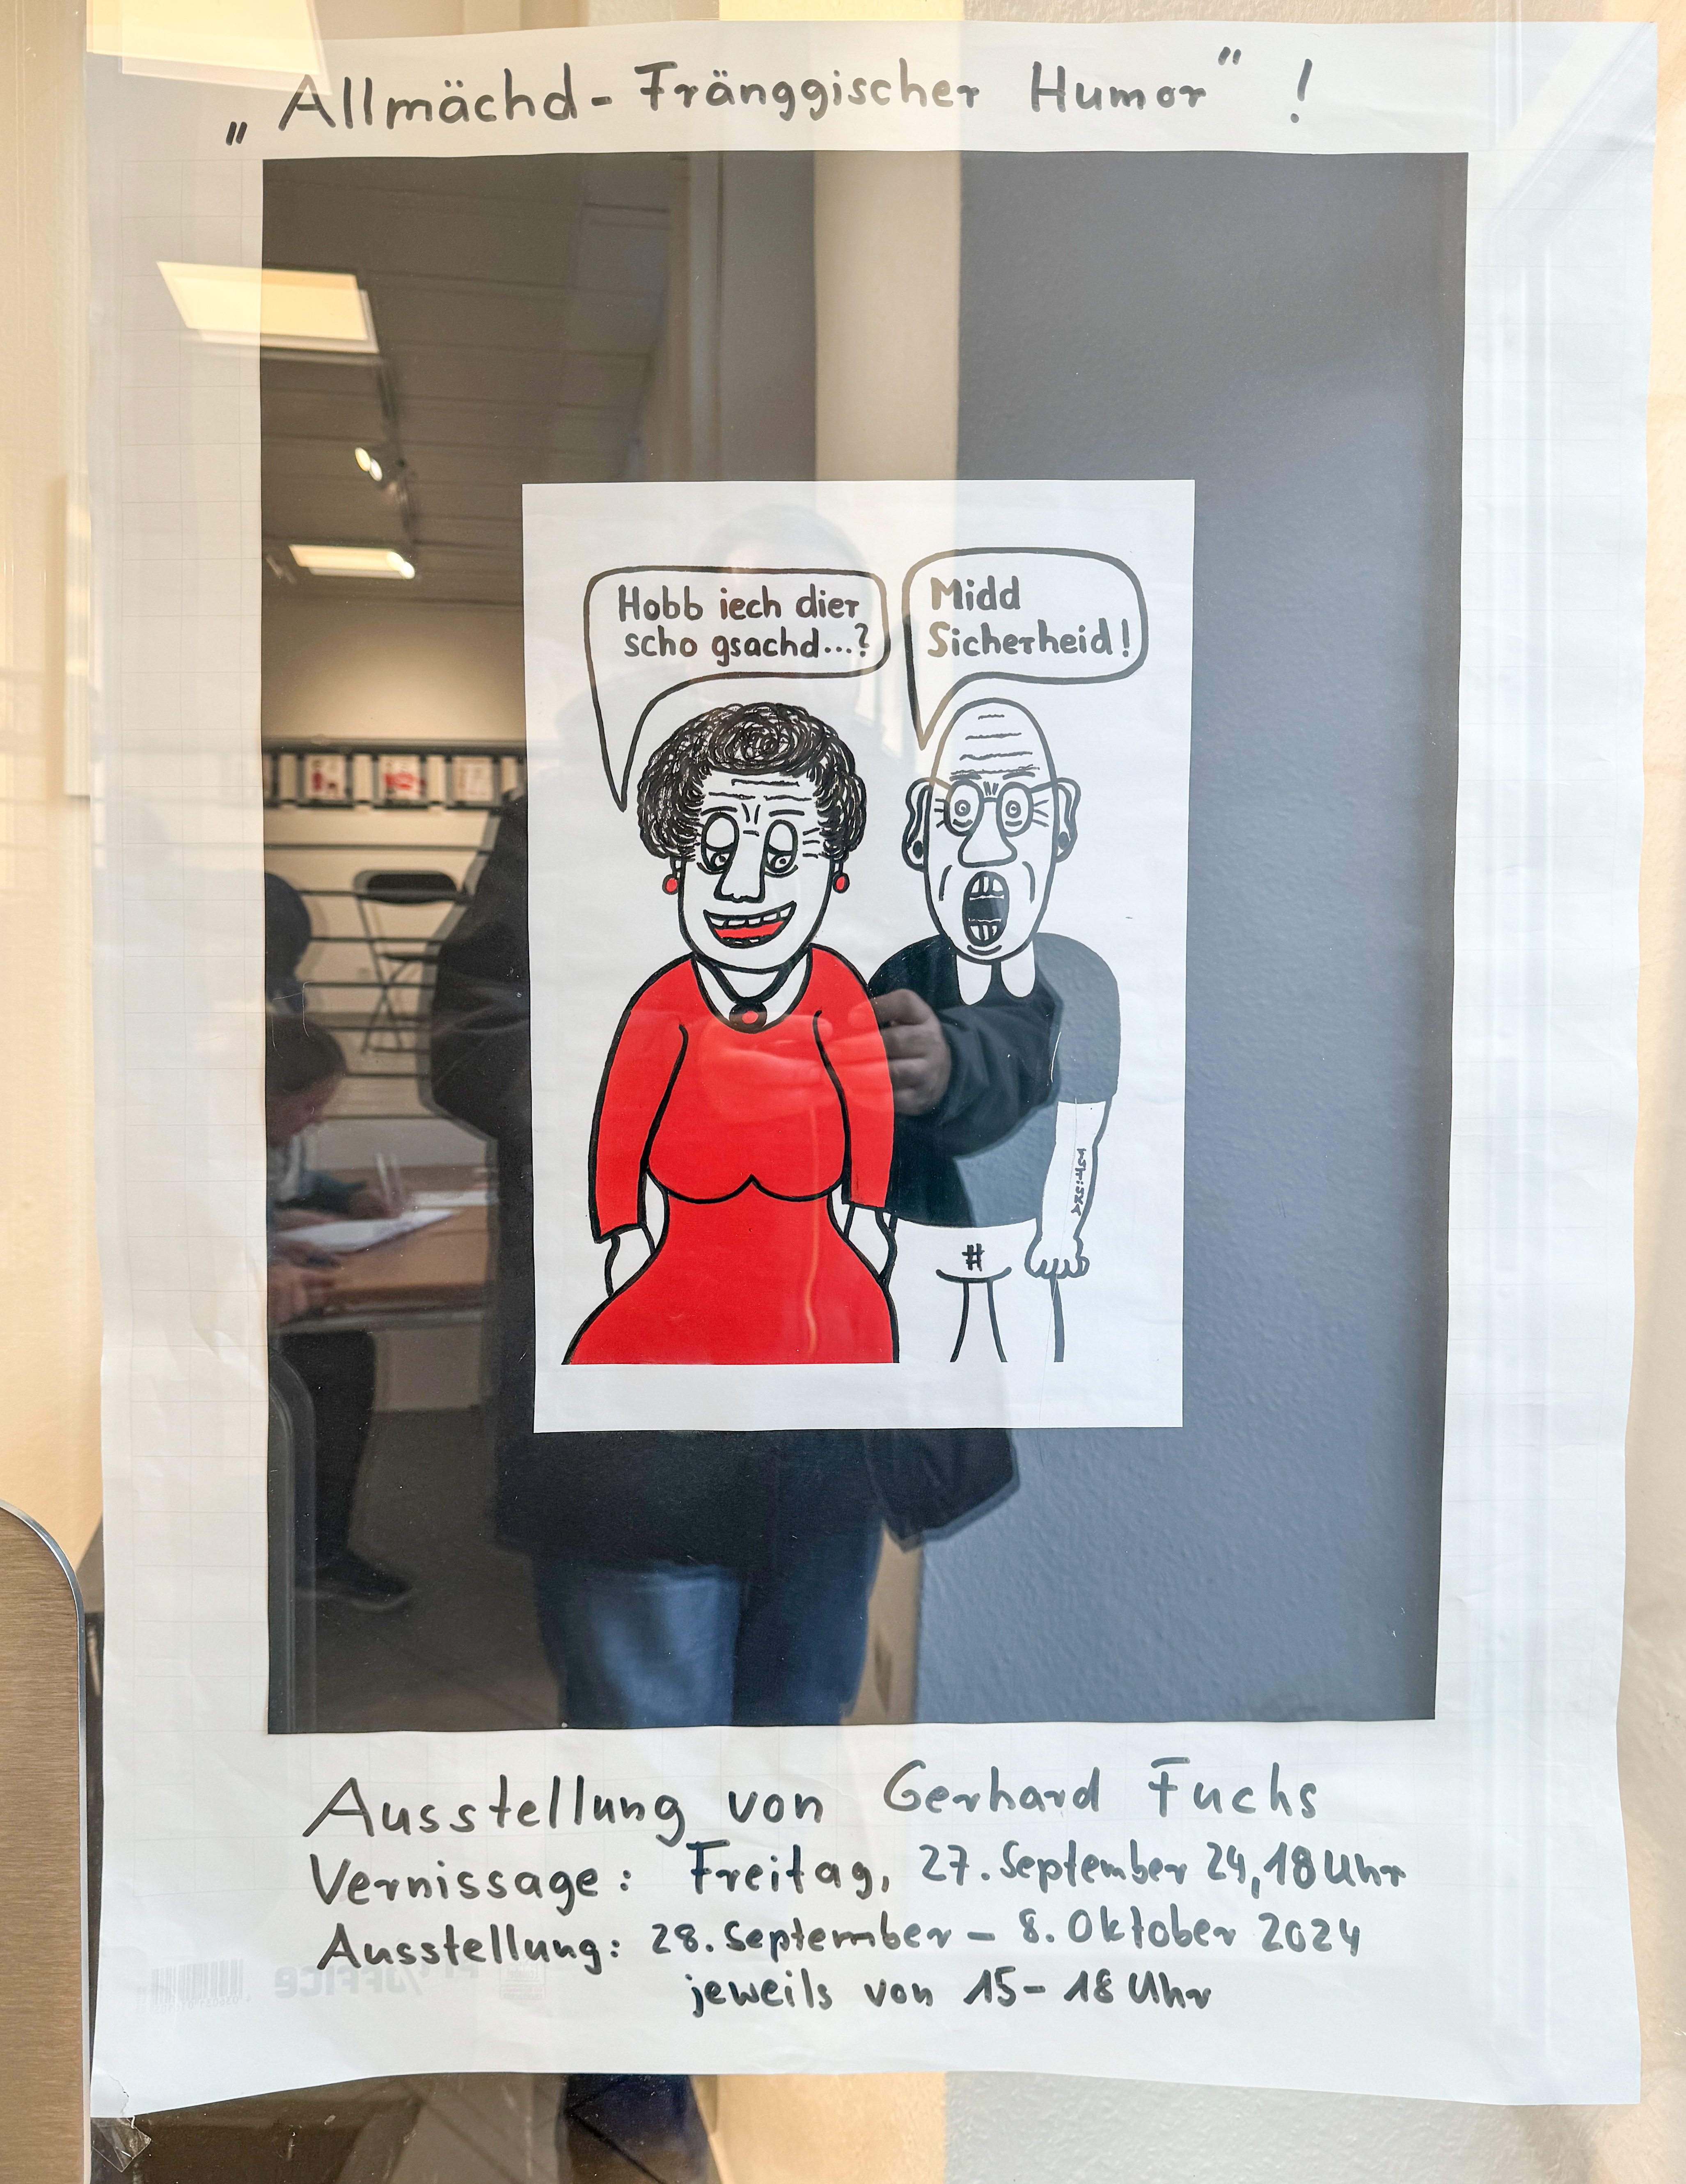 „Allmächd - Fränggischer Humor" !
Hobb iech dier
scho gsachd...?
Midd
Sicherheid!
#
Ausstellung von Gerhard Fuchs
Vernissage: Freitag, 27. September 24, 18 Uhr
Ausstellung: 28. September - 8. Oktober 2024
jeweils von 15 - 18 Uhr